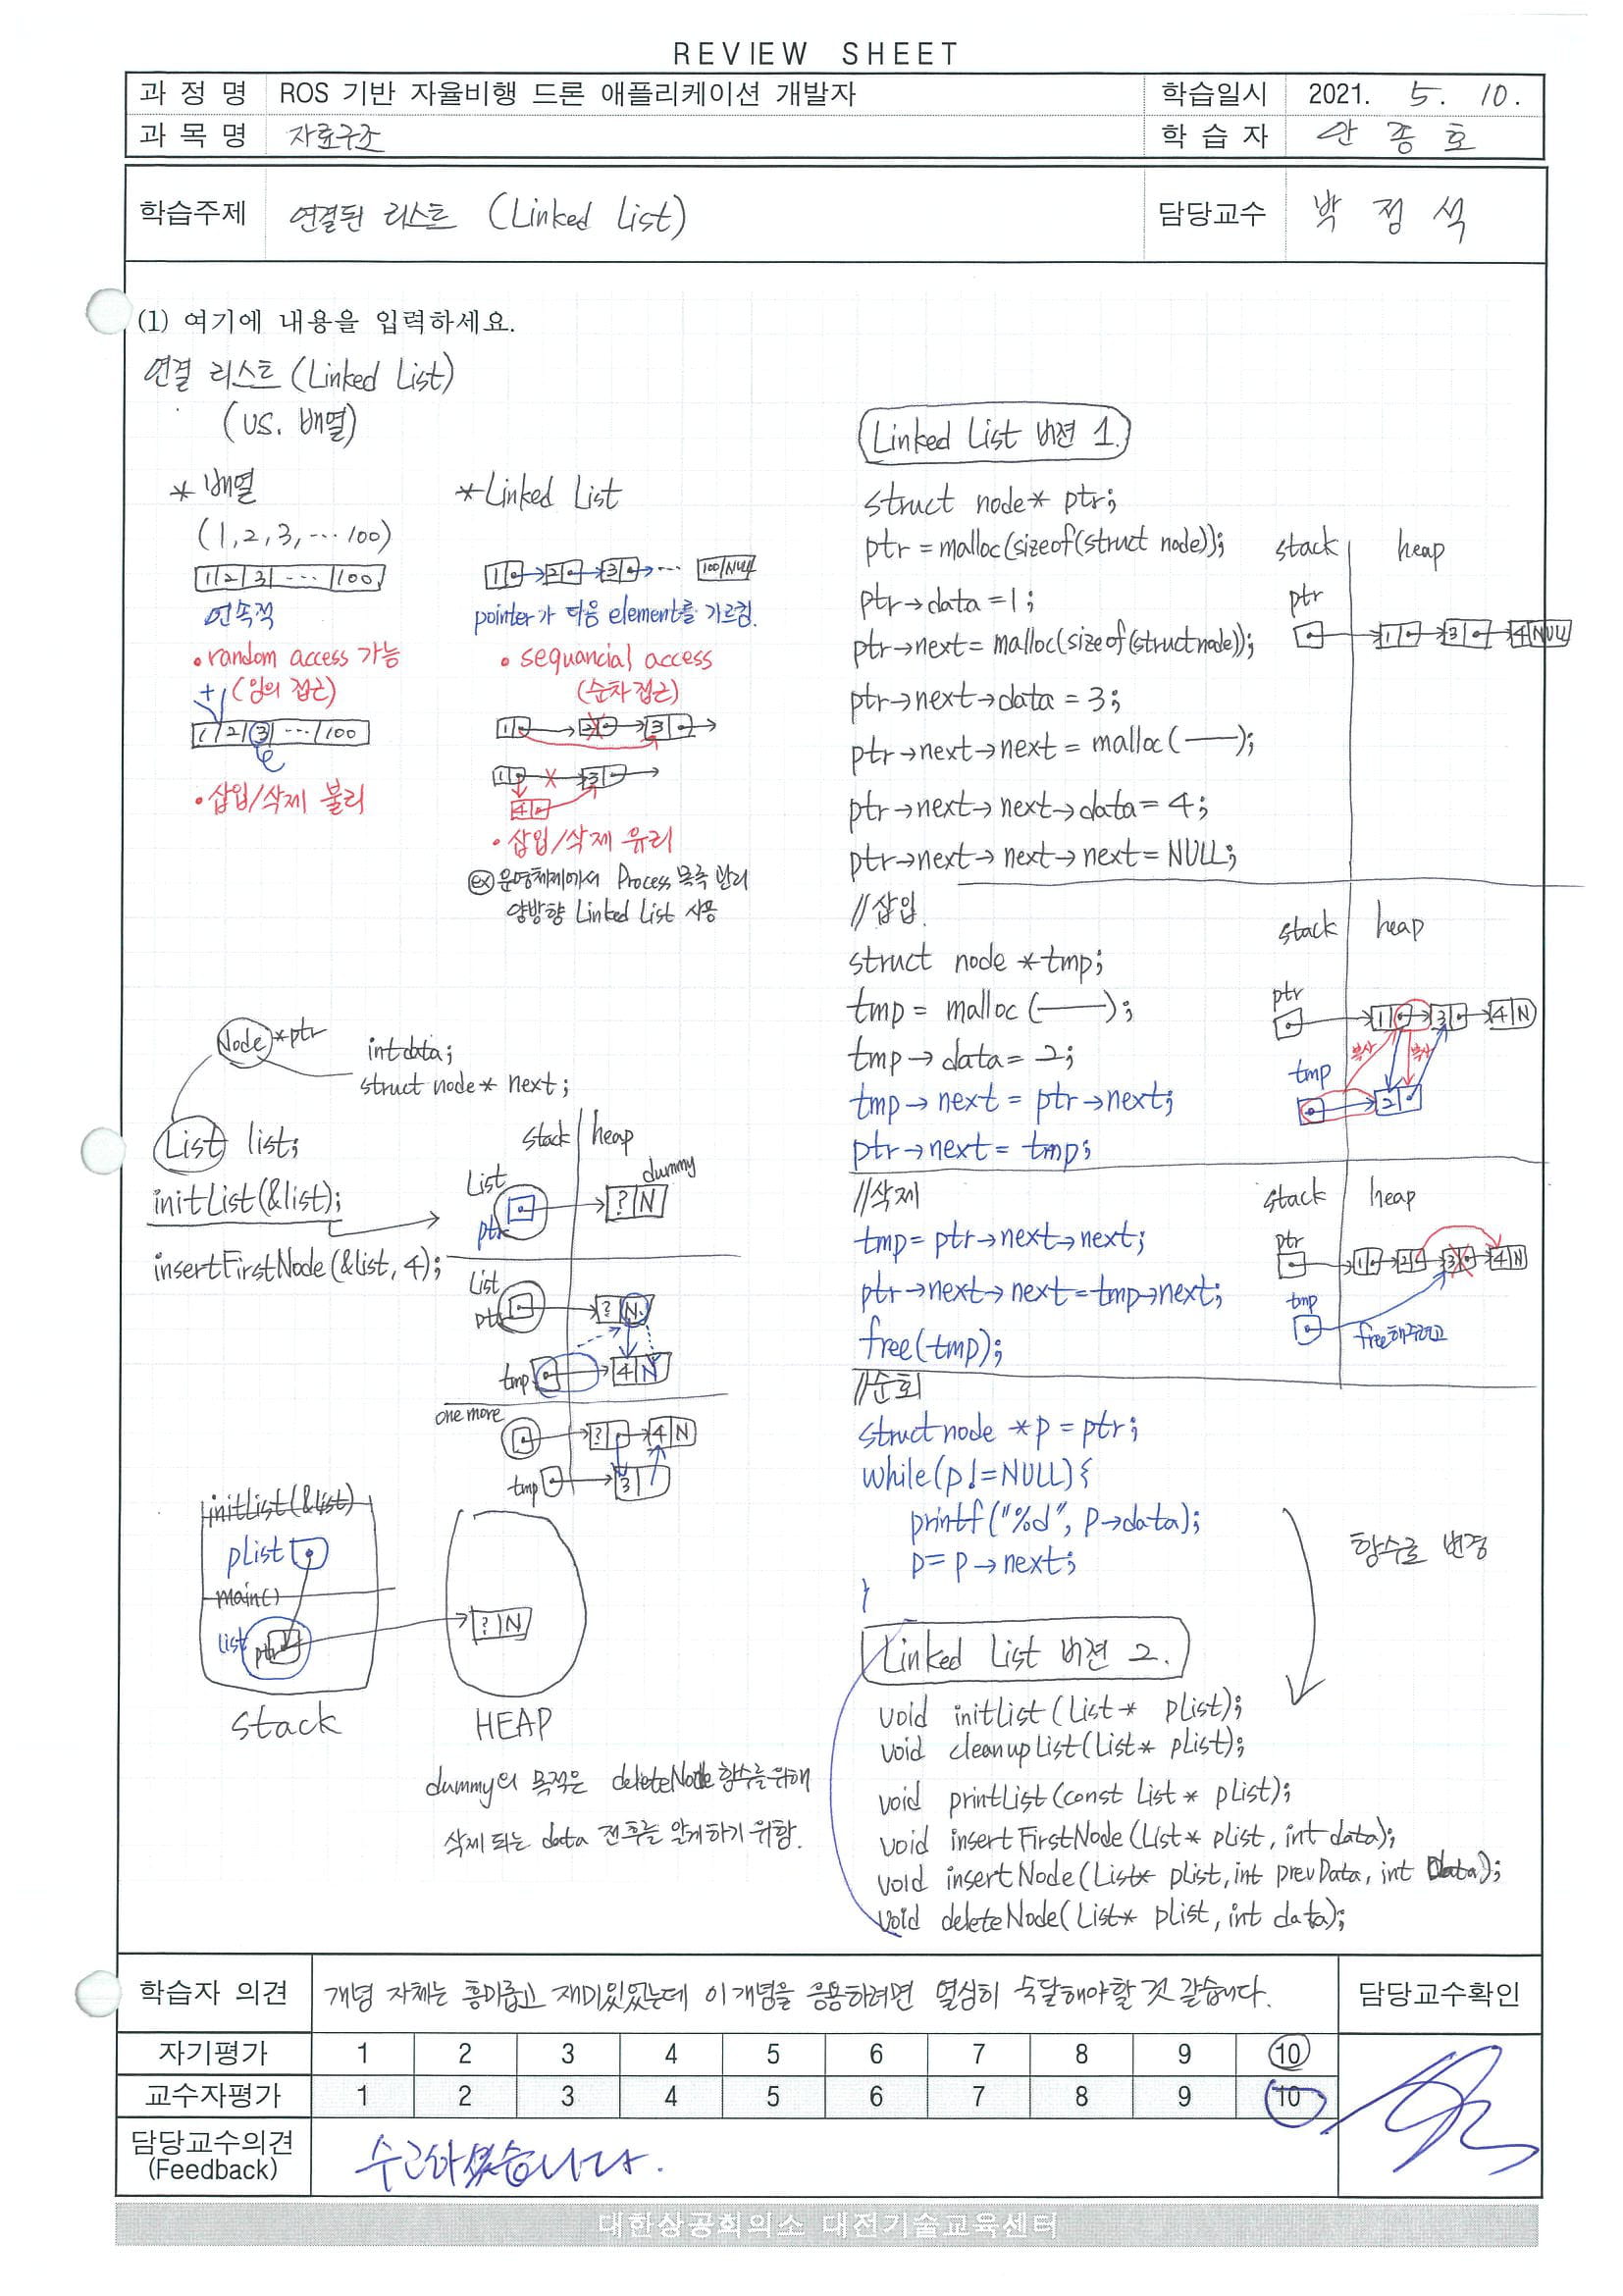 REVIEW SHEET
과 정 명 ROS 기반 자율비행 드론 애플리케이션 개발자 학습일시 2021. 5. 10.
과 목 명 자료구조 학 습 자 안 종 호
학습주제 연결된 리스트 (Linked List) 담당교수 박 정 석
(1) 여기에 내용을 입력하세요.
연결 리스트 (Linked List)
(vs. 배열)
* 배열
(1,2,3,…100)
1 2 3 … 100
연속적
• random access 가능
(임의 접근)
+
1 2 3 … 100
• 삽입/삭제 불리
* Linked List
1 2 3 … 100 NULL
pointer가 다음 element를 가르킴.
• sequancial access
(순차접근)
1 2 3
1 3
4
• 삽입/삭제 유리
ex 운영체제에서 Process 목록 관리
양방향 Linked List 사용
Node *ptr
int data;
struct node* next;
List list;
initList(&list);
insertFirstNode(&list, 4);
stack heap
List
ptr
dummy
? N
List
ptr
? N
tmp 4 N
one more
? 4 N
tmp 3
initList(&list)
plist
main()
list ptr
? N
stack HEAP
dummy의 목적은 deleteNode 함수를 위해
삭제 되는 data 전후를 알게하기 위함.
Linked List 버젼 1.
struct node* ptr;
ptr = malloc(sizeof(struct node));
ptr→data = 1;
ptr→next = malloc(sizeof(struct node));
ptr→next→data = 3;
ptr→next→next = malloc( — );
ptr→next→next→data = 4;
ptr→next→next→next = NULL;
stack heap
ptr
1 3 4 NULL
//삽입
struct node *tmp;
tmp = malloc( — );
tmp→data = 2;
tmp→next = ptr→next;
ptr→next = tmp;
stack heap
ptr
1 3 4 N
복사 복사
tmp
2
//삭제
tmp = ptr→next→next;
ptr→next→next = tmp→next;
free(tmp);
stack heap
ptr
1 2 3 4 N
tmp
free해주려고
//순회
struct node *p = ptr;
while(p != NULL){
printf("%d", p→data);
p = p→next;
}
함수로 변경
Linked List 버젼 2.
void initList(List* plist);
void cleanupList(List* plist);
void printList(const List* plist);
void insertFirstNode(List* plist, int data);
void insertNode(List* plist, int prevData, int data);
void deleteNode(List* plist, int data);
학습자 의견 개념 자체는 흥미롭고 재미있었는데 이 개념을 응용하려면 열심히 숙달해야할 것 같습니다. 담당교수확인
자기평가 1 2 3 4 5 6 7 8 9 10
교수자평가 1 2 3 4 5 6 7 8 9 10
담당교수의견 수고하셨습니다.
(Feedback)
대한상공회의소 대전기술교육센터